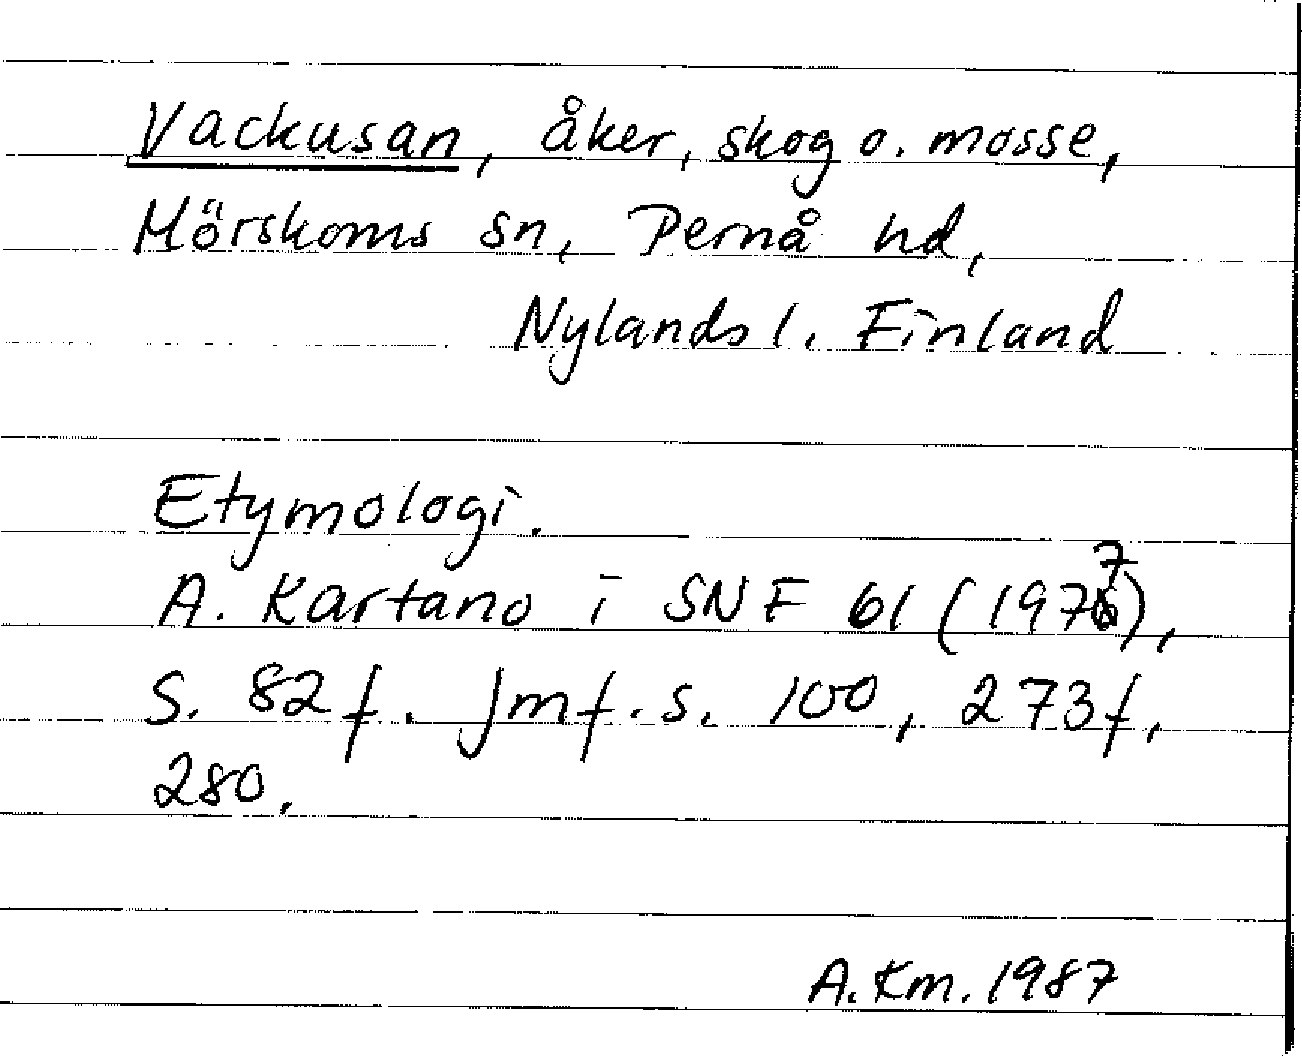 Vackusan, åker, skog o. mosse,
Mörskoms sn, Pernå hd,
Nylands l. Finland
Etymologi.
A. Kartano i SNF 61 (1977),
s. 82 f. Jmf. s. 100, 273 f,
280.
A. Km. 1987